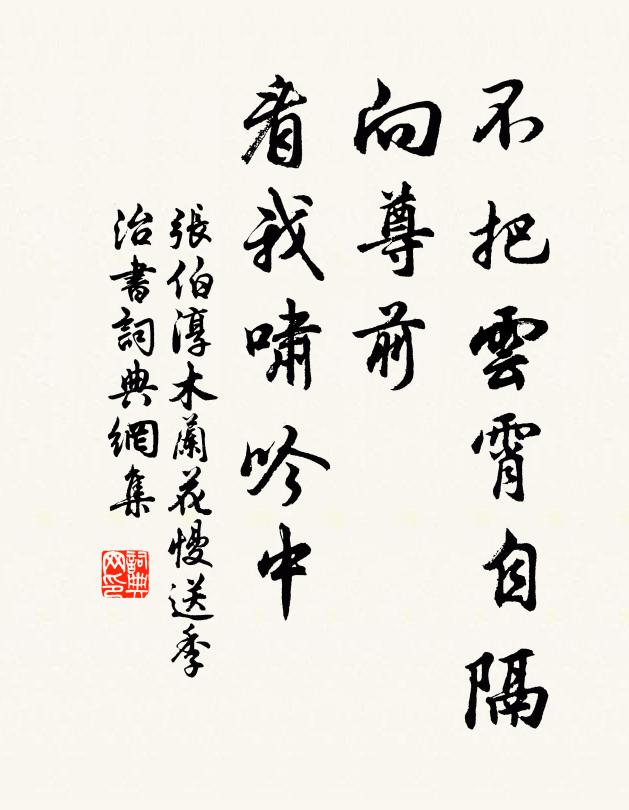 不把雲霄自隔
向尊前
看我嘯吟中
張伯淳木蘭花慢送季
治書詞典網集
詞典网印